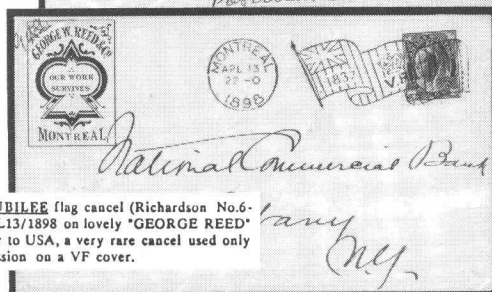 GEORGE W. REED & CO.
OUR WORK
SURVIVES
MONTREAL
MONTREAL
APL 13
22-0
1898
1837
V.R.I.
National Commercial Bank
bany
N.Y.
UBILEE flag cancel (Richardson No.6-
L13/1898 on lovely "GEORGE REED"
r to USA, a very rare cancel used only
sion on a VF cover.